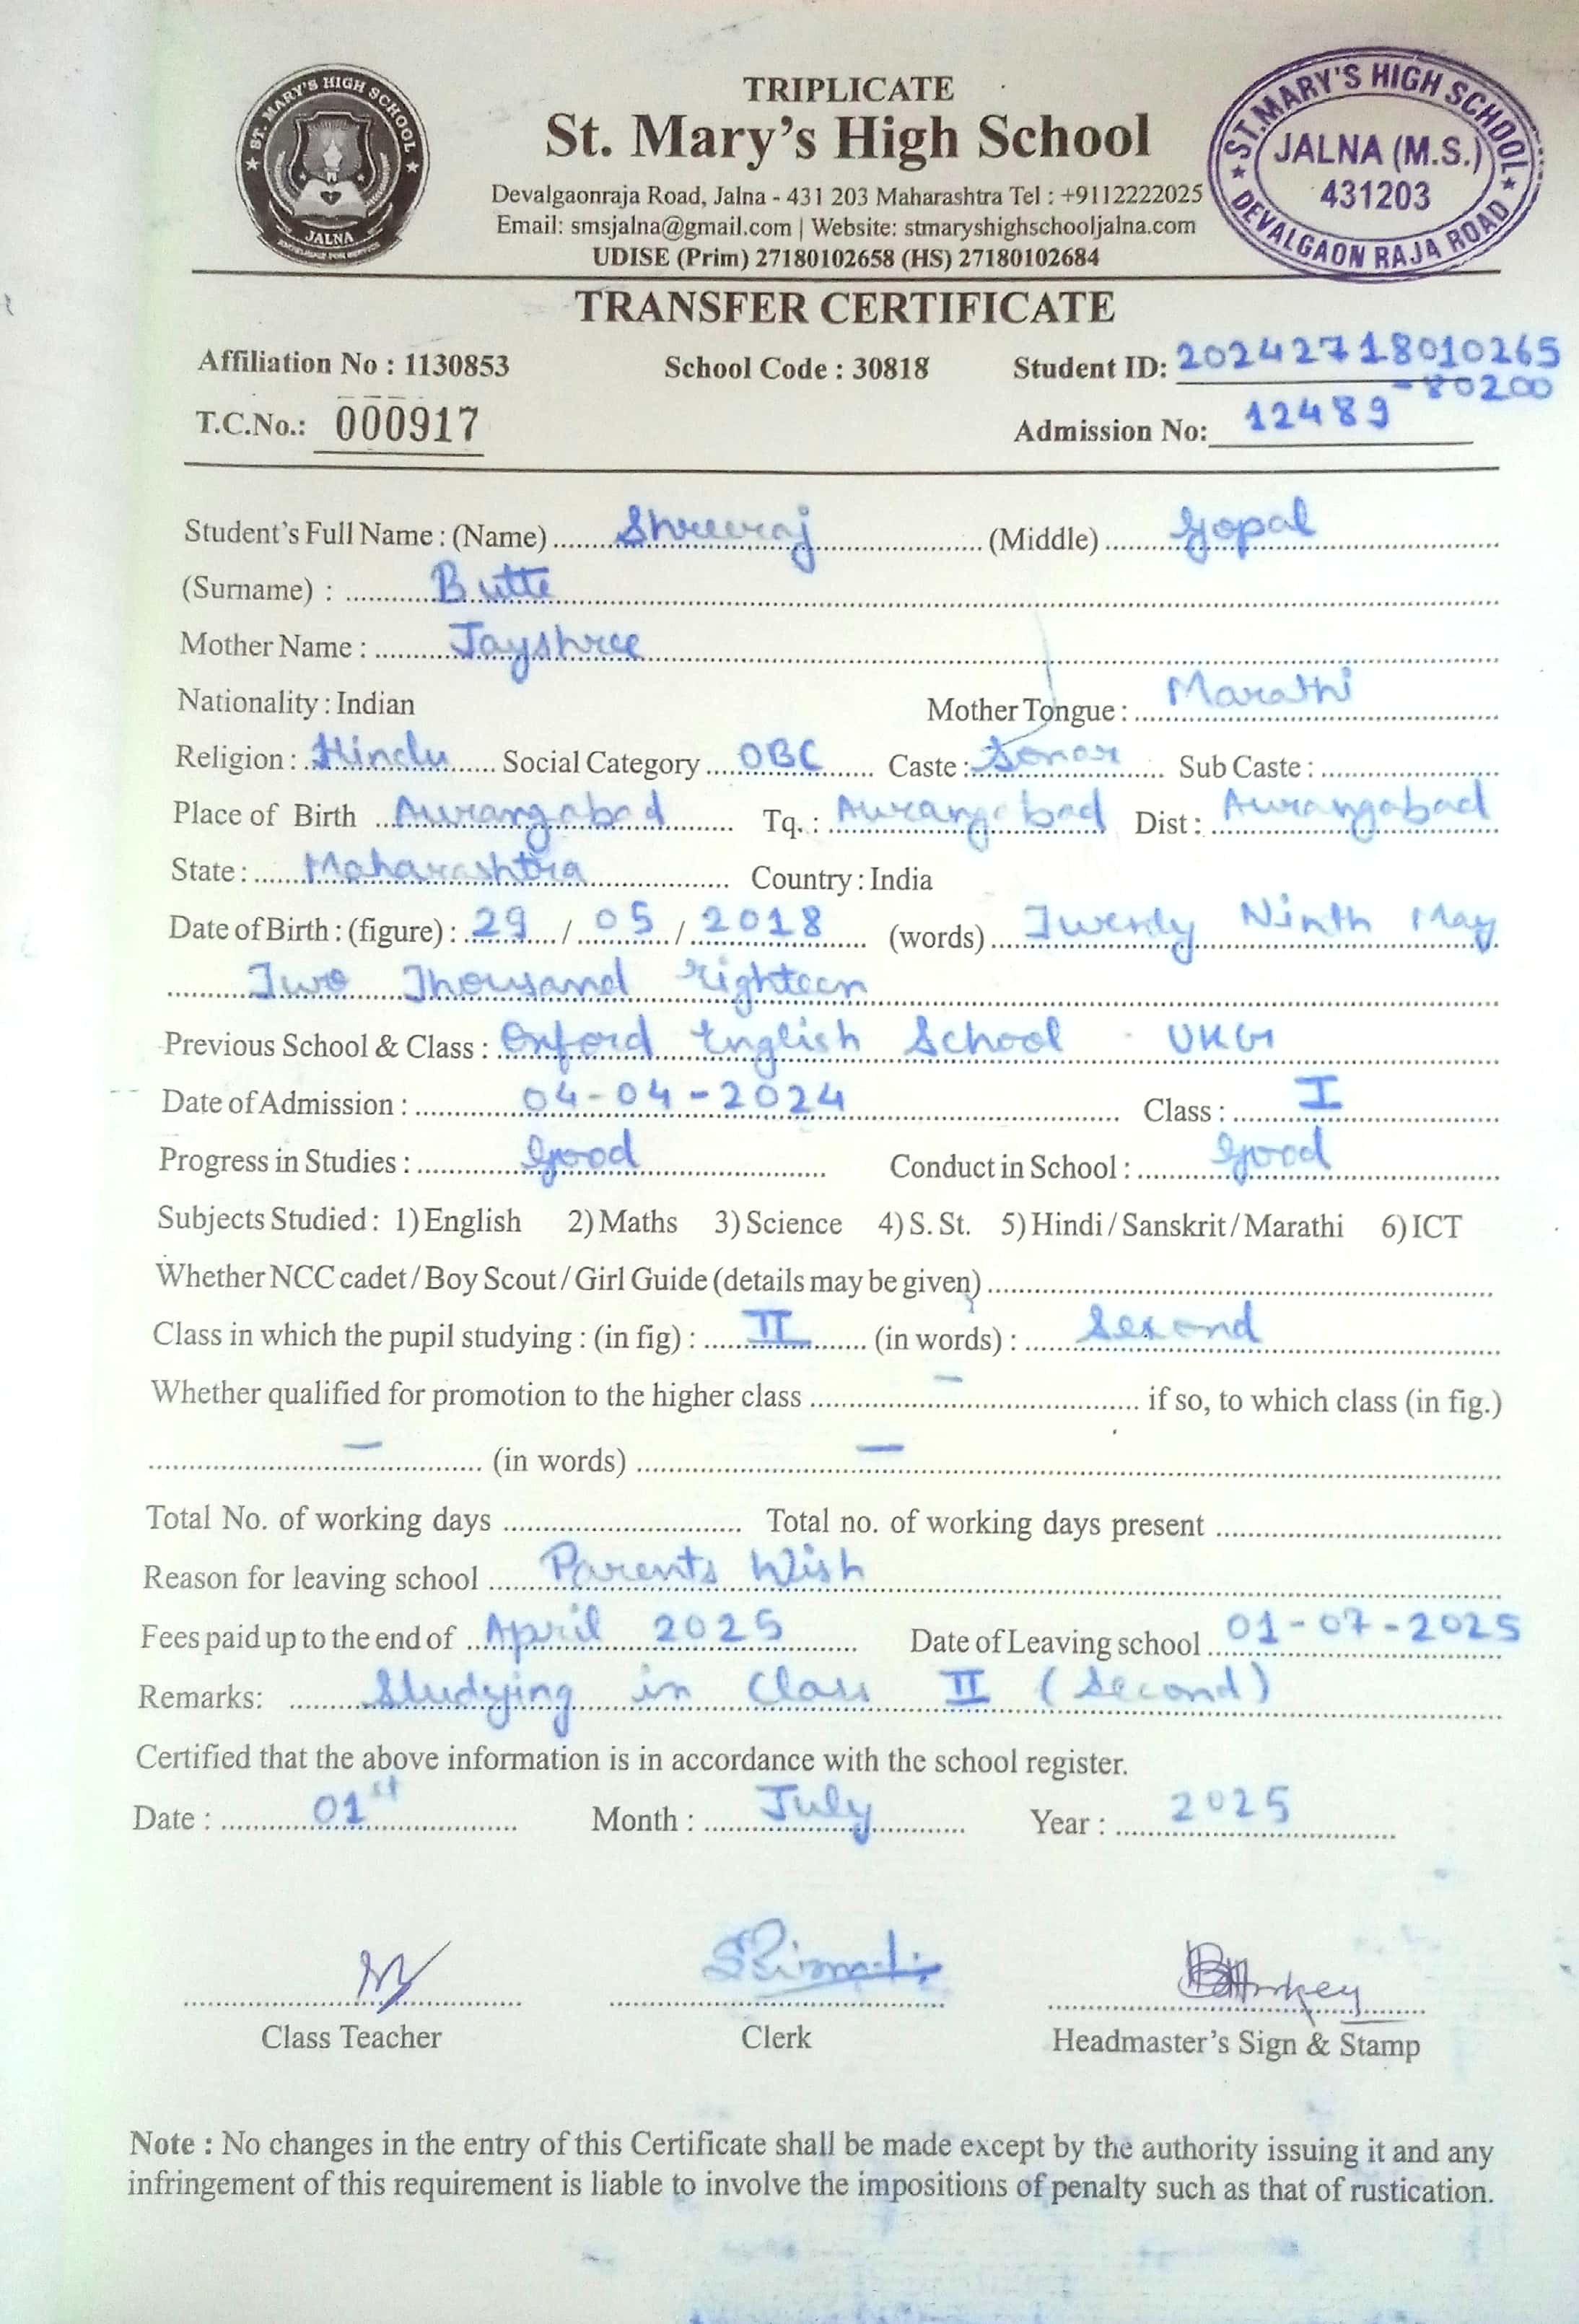 TRIPLICATE
St. Mary's High School
Devalgaonraja Road, Jalna - 431 203 Maharashtra Tel : +9112222025
Email: smsjalna@gmail.com | Website: stmaryshighschooljalna.com
UDISE (Prim) 27180102658 (HS) 27180102684
ST. MARY'S HIGH SCHOOL
JALNA
ST.MARY'S HIGH SCHOOL
JALNA (M.S.)
431203
DEVALGAON RAJA ROAD
TRANSFER CERTIFICATE
Affiliation No : 1130853 School Code : 30818 Student ID: 20242718010265
-80200
T.C.No.: 000917 Admission No: 12489
Student's Full Name : (Name) Shreeraj (Middle) Gopal
(Surname) : Butte
Mother Name : Jayshree
Nationality : Indian Mother Tongue : Marathi
Religion : Hindu Social Category OBC Caste : Sonar Sub Caste :
Place of Birth Aurangabad Tq. : Aurangabad Dist : Aurangabad
State : Maharashtra Country : India
Date of Birth : (figure) : 29 / 05 / 2018 (words) Twenty Ninth May
Two Thousand Eighteen
Previous School & Class : Oxford English School - UKG
Date of Admission : 04-04-2024 Class : I
Progress in Studies : Good Conduct in School : Good
Subjects Studied : 1) English 2) Maths 3) Science 4) S. St. 5) Hindi / Sanskrit / Marathi 6) ICT
Whether NCC cadet / Boy Scout / Girl Guide (details may be given)
Class in which the pupil studying : (in fig) : II (in words) : Second
Whether qualified for promotion to the higher class - if so, to which class (in fig.)
- (in words) -
Total No. of working days Total no. of working days present
Reason for leaving school Parents Wish
Fees paid up to the end of April 2025 Date of Leaving school 01-07-2025
Remarks: Studying in Class II (Second)
Certified that the above information is in accordance with the school register.
Date : 01st Month : July Year : 2025
Class Teacher Clerk Headmaster's Sign & Stamp
Note : No changes in the entry of this Certificate shall be made except by the authority issuing it and any
infringement of this requirement is liable to involve the impositions of penalty such as that of rustication.